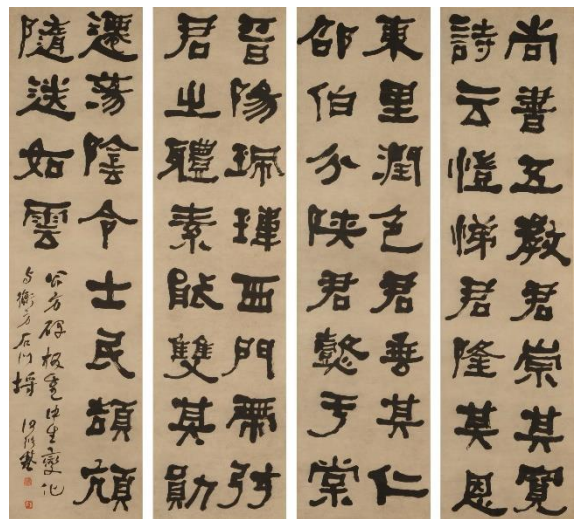 尚書五教君崇其寬
詩云愷悌君隆其恩
東里潤色君垂其仁
邵伯分陝君懿于棠
晉陽珮瑋西門帶弦
君之體素能雙其勛
遷蕩陰令士民頡頏
隨送如雲
公方碑板重中生變化
与衡方石門埒 何紹基